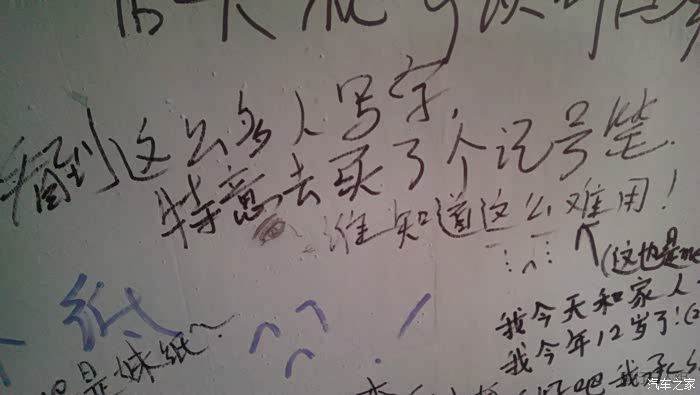 看到这么多人写字,
特意去买了个记号笔.
谁知道这么难用!
(这也是me
我今天和家人
我今年12岁了!
纸
是妹纸~
吧我承
汽车之家